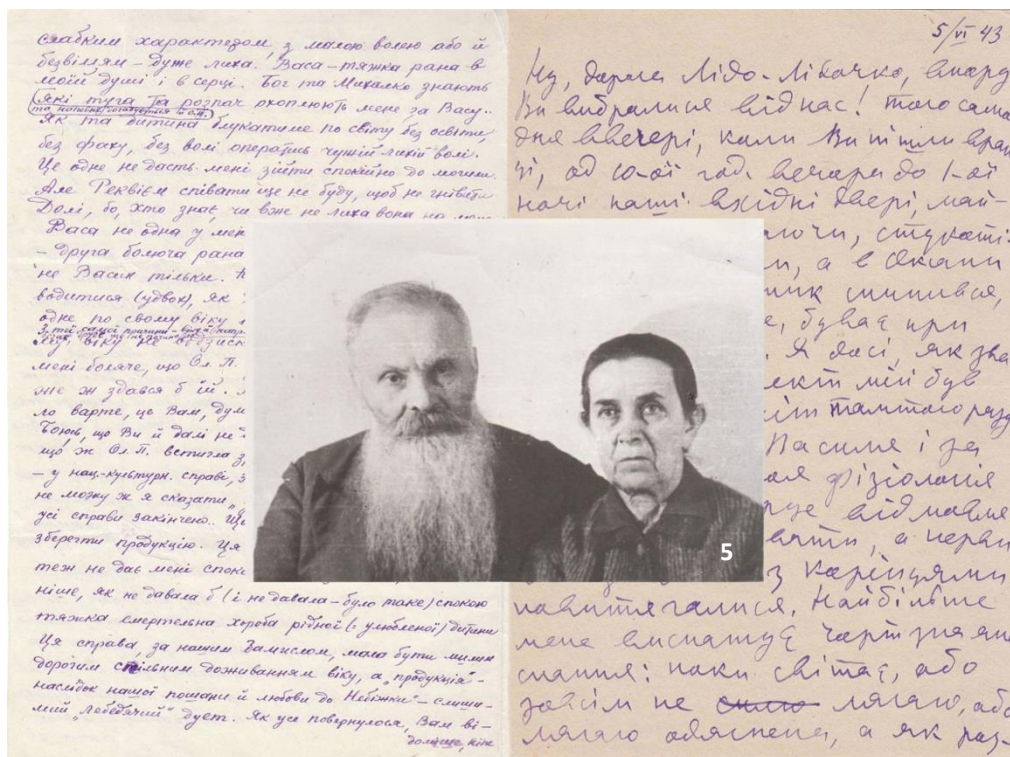 слабким характером, з малою волею або й
безвіллям – дуже лиха! Васа – тяжка рана в
моїй душі і в серці. Бог та Михалко знають
Які туга та розпач охоплюють мене за Васу.
та написки
Як та дитина блукатиме по світу без освіти,
без фаху, без волі опертись чужій лихій волі.
Це одне не дасть мені зійти спокійно до могили.
Але Реквієм співати ще не буду, щоб не гнівити
Долі, бо, хто знає, чи вже не лиха вона на
Васа не одна у мен
– друга болюча рана
не Васик тільки.
водитися (удвох), як
одне по свому віку
З тої самої причини – віку
віку не
мені боляче, що Ол. П.
же ж здався б їй.
ло варте, це Вам, дум
Боюсь, що Ви й далі не
що ж Ол. П. встигла з
– у нац.-культурн. справі, з
не можу ж я сказати „
усі справи закінчено.. Ще
зберегти продукцію. Ця
теж не дає мені споко
ніше, як не давала б (і не давала – було таке) спокою
тяжка смертельна хороба рідної (і улюбленої) дитини
Ця справа, за нашим замислом, мала бути милим
дорогим спільним доживанням віку, а „продукція" –
наслідок нашої пошани й любови до Небіжки" – слиши-
мий „лебедячий" дует. Як усе повернулося, Вам ві-
доміше, ніж
5/VI 43
Ну, дорога Лідо-Лібочко, впору
Ви вибралися від нас! Того сама
дня ввечері, коли Ви пішли вран
ці, од 10-ої год. вечора до 1-ої
ночі наші вхідні двері, май-
ючи, стукоті
и, а в Окани
ник смутився,
е, буває при
. Я досі, як зва
лект мій був
після тамтого разу
Василя і за
моя фізіологія
рує відмовле
вяти, а нерви
з корінцями
повитягалися. Найбільше
мене виснажує чортзнащо
спання: поки світає, або
зовсім не лягаю, або
лягаю одягнена, а як роз-
5